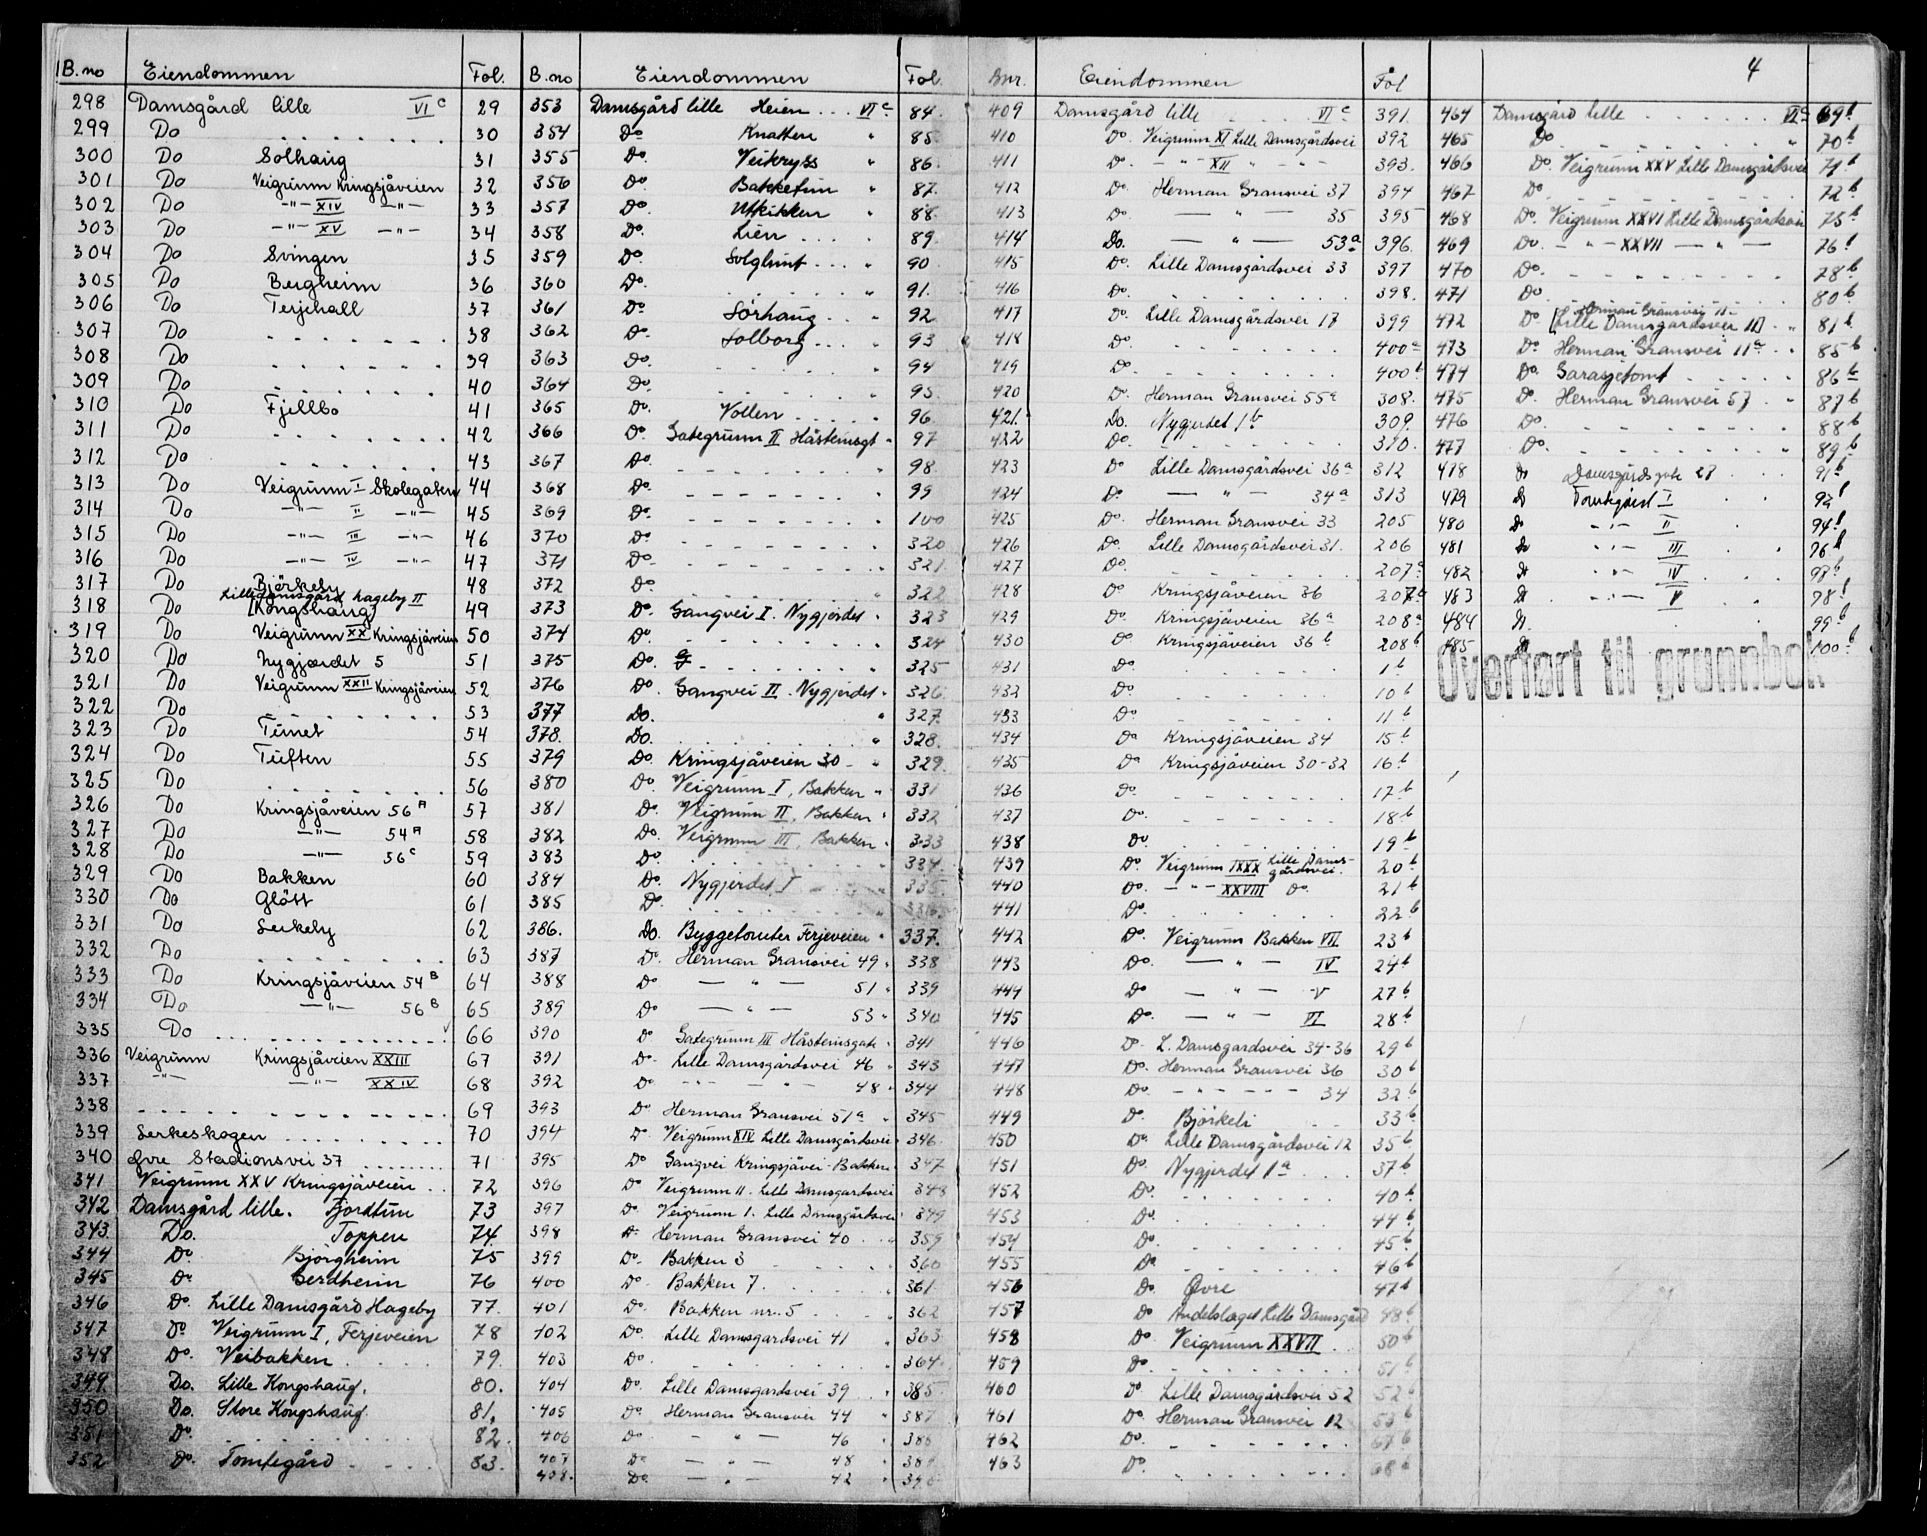 B.no Eiendommen Fol.
298 Damsgård lille VI c 29
299 Do . . . . . . . 30
300 Do Solhaug 31
301 Do Veigrunn Kringsjåveien 32
302 Do -"- XIV -"- 33
303 Do -"- XV -"- 34
304 Do Svingen 35
305 Do Bergheim 36
306 Do Terjehall 37
307 Do . . . . . . . 38
308 Do . . . . . . . 39
309 Do . . . . . . . 40
310 Do Fjellbo 41
311 Do . . . . . . . 42
312 Do . . . . . . . 43
313 Do Veigrunn I Skolegaten 44
314 Do -"- II -"- 45
315 Do -"- III -"- 46
316 Do -"- IV -"- 47
317 Do Björkeby 48
Lille Damsgård hageby II
318 Do [Kongshaug] 49
319 Do Veigrunn XX Kringsjåveien 50
320 Do Nygjærdet 5 51
321 Do Veigrunn XXII Kringsjåveien 52
322 Do . . . . . . . 53
323 Do Tunet 54
324 Do Tuften 55
325 Do . . . . . . . 56
326 Do Kringsjåveien 56 A 57
327 Do -"- 54 A 58
328 Do -"- 56 c 59
329 Do Bakken 60
330 Do Gløtt 61
331 Do Lerkeby 62
332 Do . . . . . . . 63
333 Do Kringsjåveien 54 B 64
334 Do -"- 56 B 65
335 Do . . . . . . . 66
336 Veigrunn Kringsjåveien XXIII 67
337 -"- -"- XXIV 68
338 . . . . . . . 69
339 Lerkeskogen . . . . . . . 70
340 Øvre Stadionsvei 37 . . . . . . . 71
341 Veigrunn XXV Kringsjåveien . . 72
342 Damsgård lille. Fjordtun 73
343 Do. Toppen 74.
344 Do Bjørgheim 75
345 Do Gerdheim 76
346 Do. Lille Damsgård Hageby 77.
347 Do Veigrunn I, Ferjeveien 78
348 Do. Veibakken . . . . 79.
349 Do. Lille Kongshaug. 80.
350 Do. Store Kongshaug. 81.
351 Do . . . . . . . 82.
352 Do. Tomtegård . . . . 83.
B.no Eiendommen Fol.
353 Damsgård lille Heien . . . VI c 84
354 Do Knatten " 85
355 Do. Veikryss " 86
356 Do. Bakketun " 87.
357 Do. Utkikken " 88
358 Do. Lien . . . . " 89
359 Do. Solglimt . . . " 90
360 Do. . . . . . . . " 91.
361 Do Sørhaug . . . " 92
362 Do. Solborg . . . " 93
363 Do. . . . . . . . " 94
364 Do. . . . . . . . " 95.
365 Do. Vollen . . . . " 96.
366 Do. Gategrunn II Håsteinsgt " 97
367 Do. . . . . . . . " 98.
368 Do. . . . . . . . " 99
369 Do. . . . . . . . " 100
370 Do. . . . . . . . " 320
371 Do. . . . . . . . " 321
372 Do. . . . . . . . " 322
373 Do. Gangvei I. Nygjerdet " 323
374 Do. . . . . . . . " 324
375 Do. . . . . . . . " 325
376 Do. Gangvei II. Nygjerdet " 326
377 Do. " 327.
378. Do. . . . . . . . " 328.
379 Do. Kringsjåveien 30 - " 329
380 Do. Veigrunn I, Bakken " 331
381 Do. Veigrunn II, Bakken " 332
382 Do. Veigrunn III, Bakken " 333
383 Do. . . . . . . . 334
384 Do. Nygjerdet I 335
385 Do. . . . . . . . " 336
386. Do. Byggetomter Ferjeveien " 337.
387 Do. Herman Gransvei 49 " 338
388 Do — " — 51 " 339
389 Do — " — 53 " 340
390 Do Gategrunn III Håsteinsgate " 341
391 Do. Lille Damsgårdsvei 46 " 343
392 Do — " — 48 " 344
393 Do. Herman Gransvei 51a " 345
394 Do Veigrunn XIV Lille Damsgårdsvei 346
395 Do Gangvei Kringsjåvei-Bakken 347
396 Do Veigrunn II. Lille Damsgårdsvei 348
397 Do. Veigrunn I. Lille Damsgårdsvei 349
398 Do. Herman Gransvei 40 . . 359
399 Do. Bakken 3 . . . . 360
400 Do Bakken 7. . . . . 361
401 Do. Bakken nr. 5 . . . 362
402 Do. Lille Damsgardsvei 41 " 363
403 Do. . . . . . . . 364
404 Do. Lille Damsgardsvei 39 . . 385
405 Do. Herman Gransvei 44 " 387
406 Do — " — 46 388
407 Do — " — 48
408. Do. — " — 42
Bnr. Eiendommen Fol
409 Damsgård lille . . . . . VI c 391.
410 Do. Veigrunn XI Lille Damsgårdsvei 392
411 Do. - " - XII " - " - 393.
412 Do. Herman Gransvei 37 394
413 Do. — " — 35 395
414 Do. — " — 53a 396
415 Do. Lille Damsgårdsvei 33 397
416 Do. . . . . . . . 398.
417 Do. Lille Damsgårdsvei 17 399
418 Do. . . . . . . . 400a
419 Do. . . . . . . . 400b
420 Do. Herman Gransvei 55a 308.
421. Do. Nygjerdet 1b 309.
422 Do. . . . . . . . 310.
423 Do Lille Damsgårdsvei 36a 312
424 Do — " — 34a 313
425 Do. Herman Gransvei 33 205
426 Do. Lille Damsgårdsvei 31. 206
427 Do. . . . . . . . 207a
428 Do Kringsjåveien 36 207b
429 Do. Kringsjåveien 36a 208a
430 Do Kringsjåveien 36b 208b
431 Do 1b
432 Do . . . . . . . 10b
433 Do . . . . . . . 11b
434 Do Kringsjåveien 34 15b
435 Do Kringsjåveien 30-32 16b
436 Do . . . . . . . 17b
437 Do. . . . . . . . 18b
438 Do. . . . . . . . 19b
439 Do. Veigrunn IXXX Lille Damsgårdsvei. 20b
440 Do. - " - XXVIII Do. 21b
441 Do. . . . . . . . 22b
442 Do. Veigrunn Bakken VII 23b
443 Do. — " — IV 24b
444 Do — " — V 27b
445 Do. — " — VI 28b
446 Do. L. Damsgardsvei 34-36 29b
447 Do. Herman Gransvei 36 30b
448 Do. - " - - - 34 32b
449 Do. Bjørkeli . . 33b
450 Do. Lille Damsgårdsvei 12 35b
451 Do. Nygjerdet 1a . . 37b
452 Do. . . . . . . . 40b
453 Do. . . . . . . . 44b
454 Do. . . . . . . . 45b
455 Do . . . . . . . 46b
456 Do. Øvre 47b
457 Do Andelslaget Lille Damsgård 48b
458 Do. Veigrunn XXVII . . 50b
459 Do. . . . . . . . 51b
460 Do. Lille Damsgårdsvei 52 52b
461 Do. Herman Gransvei 12 53b
462 Do. . . . . . . . 67b
463 Do. . . . . . . . 68b
4
464 Damsgård lille . . . . . . VI c 69b
465 Do . . . . . . . " 70b
466 Do. Veigrunn XXV Lille Damsgårdsvei 71b
467 Do . . . . . . . 72b
468 Do. Veigrunn XXVI Lille Damsgårdsvei 75b
469 Do. - " - XXVII — " — 76b
470 Do. . . . . . . . 78b
471 Do . . . . . . . 80b
Herman Gransvei 11
472 Do [Lille Damsgardsvei 11] . " 81b
473 Do Herman Gransvei 11a . . 85b
474 Do. Garasjetomt . . . . . 86b
475 Do. Herman Gransvei 57 . " 87b
476 Do. . . . . . . . 88b
477 Do. . . . . . . . 89b
478 Do Damsgårdsgate 27 . 91b
479 Do Tomtegård I . . 92b
480 Do -"- II . 94b
481 Do -"- III . . 96b
482 Do -"- IV . . . 97b
483 Do -"- V . . 98b
484 Do. . . . 99b
485 Do 100b
Overført til grunnbok